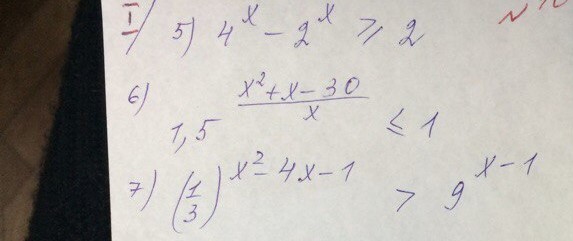 I/ 5) 4^x - 2^x ⩾ 2
6) 1,5^((x²+x-30)/x) ≤ 1
7) (1/3)^(x²-4x-1) > 9^(x-1)